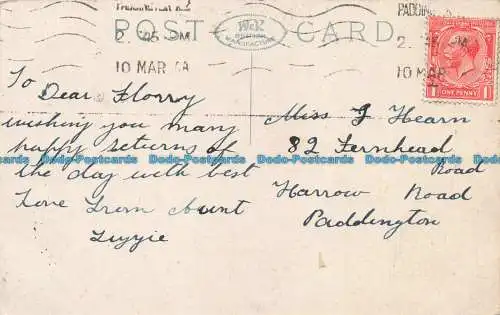 PADDINGTON
POST CARD
W&K
BRITISH
MANUFACTURE
2.45 PM
10 MAR
10 MAR
ONE PENNY
To
Dear Florry
wishing you many
happy returns of
the day with best
Love From Aunt
Lizzie
Miss F Hearn
82 Fernhead
Road
Harrow Road
Paddington
Dodo-Postcards Dodo-Postcards Dodo-Postcards Dodo-Postcards